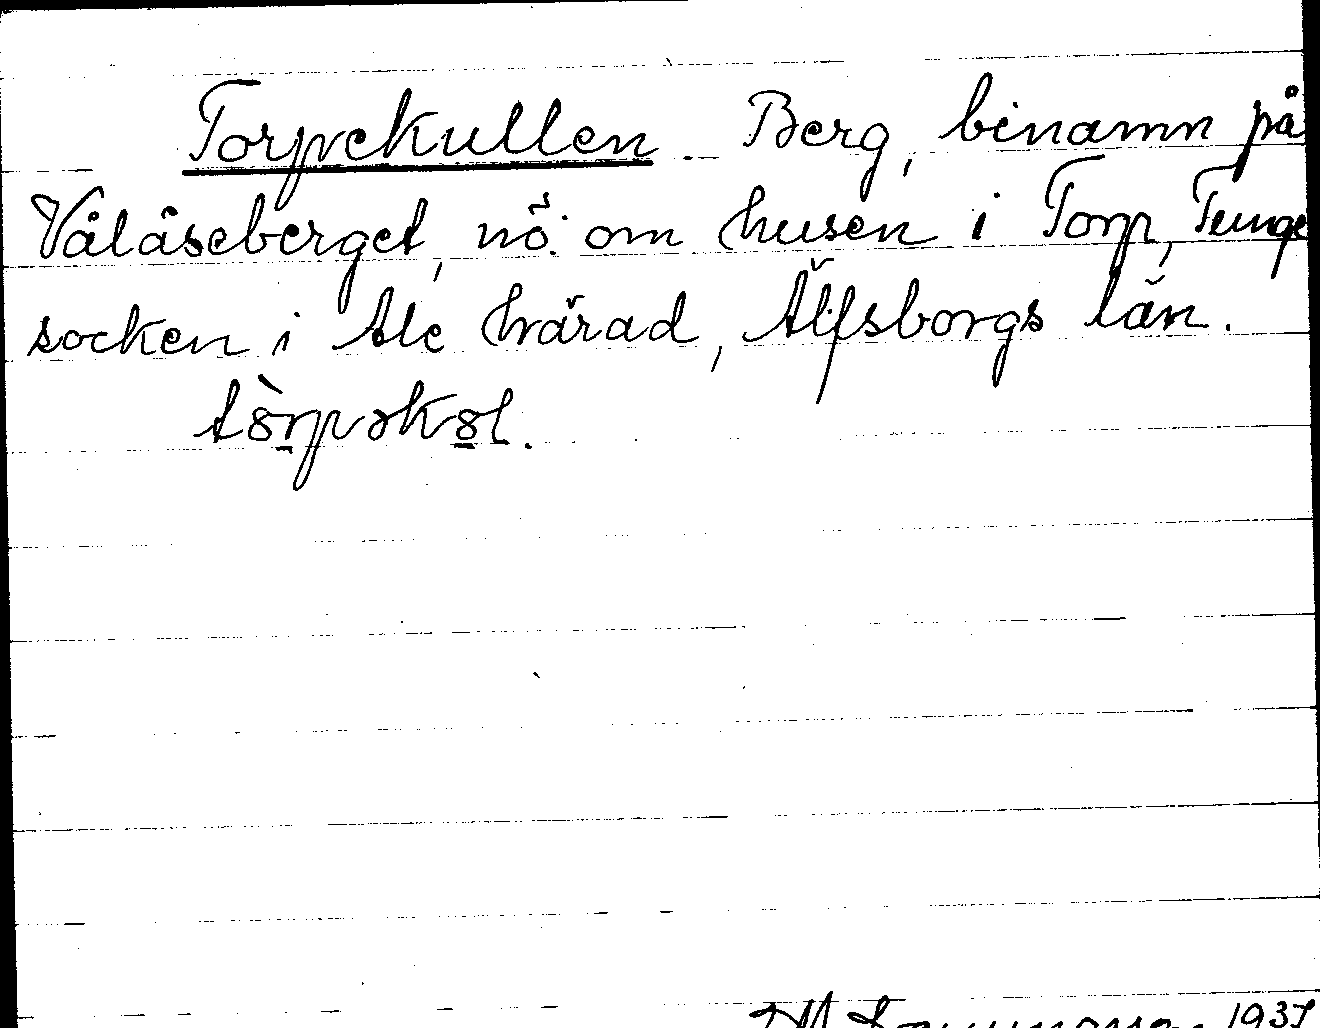 Torpekullen. Berg, binamn på
Vålåseberget, nö. om husen i Torp, Tunge
socken i Ale härad, Älfsborgs län.
tò̱rpəko̱l.
1937